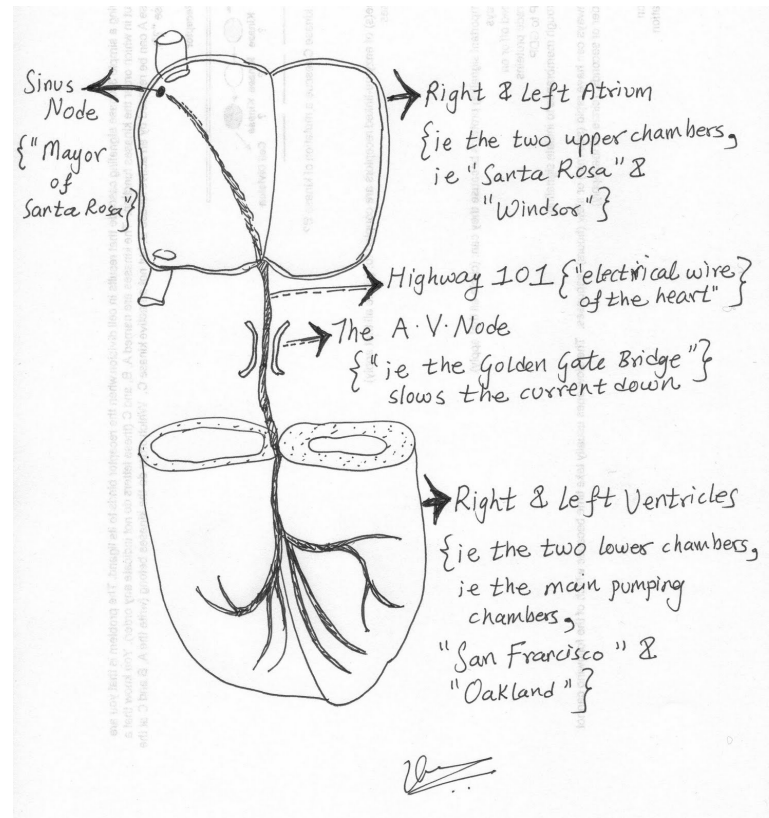 Sinus
Node
{"Mayor
of
Santa Rosa"}
Right & Left Atrium
{ie the two upper chambers,
ie "Santa Rosa" &
"Windsor"}
Highway 101 {"electrical wire
of the heart"}
The A.V. Node
{"ie the Golden Gate Bridge"}
slows the current down
Right & Left Ventricles
{ie the two lower chambers,
ie the main pumping
chambers,
"San Francisco" &
"Oakland"}